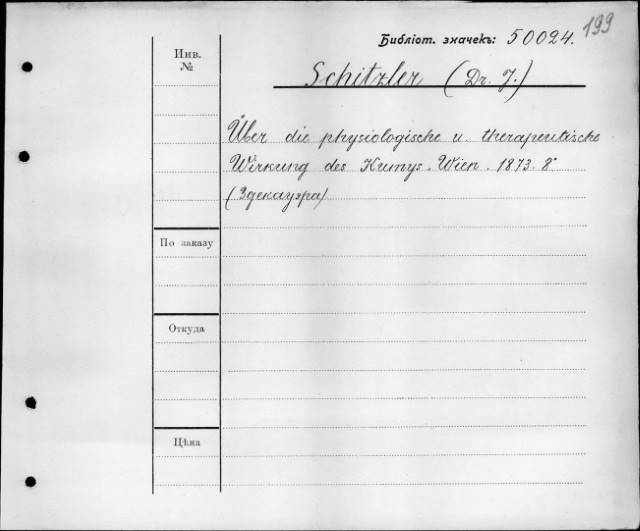 Библіот. значекъ: 50024. 199
Инв.
№
Schitzler (Dr. J.)
Über die physiologische u. therapeutische
Wirkung des Kumys. Wien. 1873. 8°
(Здекауэра)
По заказу
Откуда
Цѣна